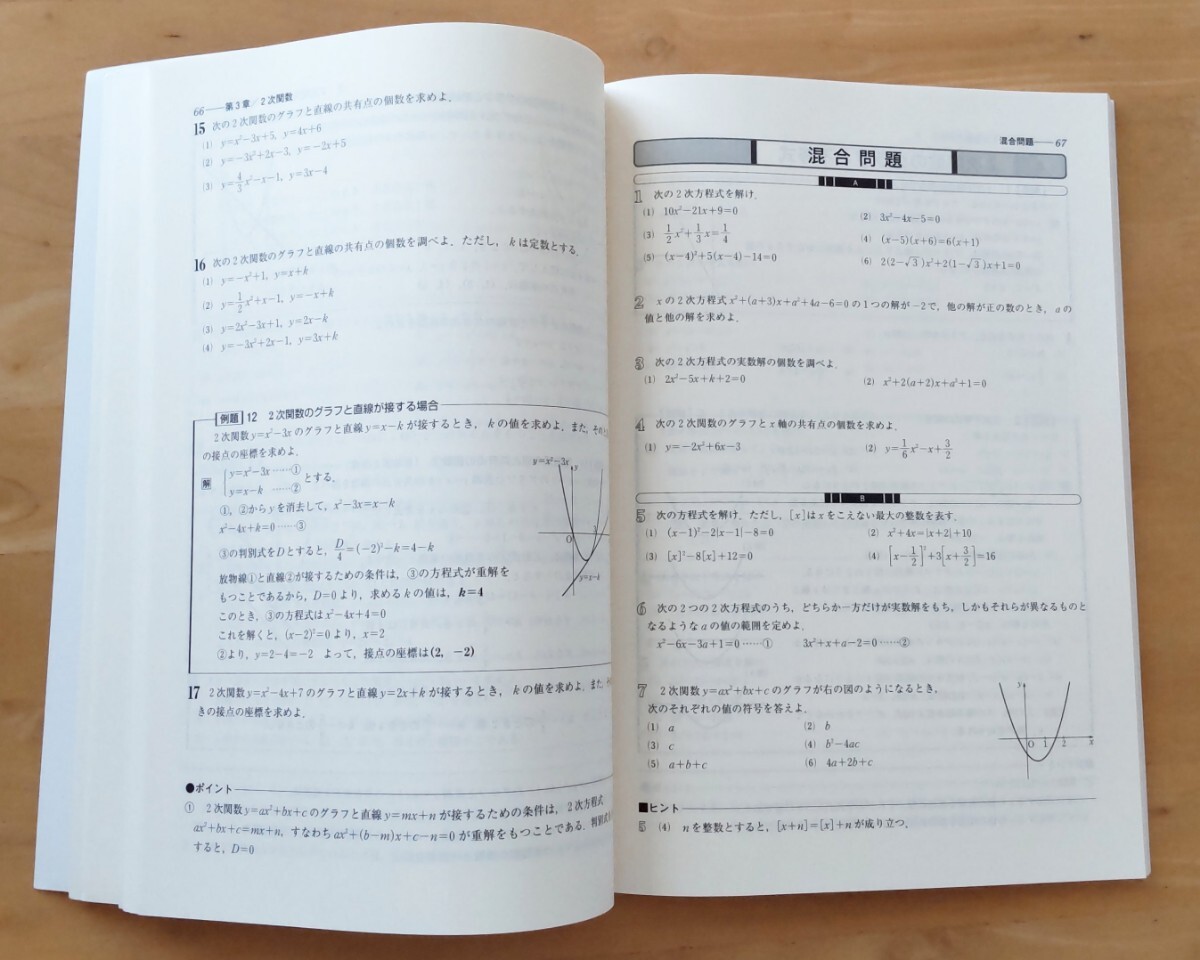 66——第3章/2次関数
15 次の2次関数のグラフと直線の共有点の個数を求めよ.
(1) y=x²−3x+5, y=4x+6
(2) y=−3x²+2x−3, y=−2x+5
(3) y=4/3x²−x−1, y=3x−4
16 次の2次関数のグラフと直線の共有点の個数を調べよ. ただし, kは定数とする.
(1) y=−x²+1, y=x+k
(2) y=1/2x²+x−1, y=−x+k
(3) y=2x²−3x+1, y=2x−k
(4) y=−3x²+2x−1, y=3x+k
例題 12 2次関数のグラフと直線が接する場合
2次関数y=x²−3xのグラフと直線y=x−kが接するとき, kの値を求めよ. また, その
の接点の座標を求めよ.
解 y=x²−3x ……①
y=x−k ……② とする.
①, ②からyを消去して, x²−3x=x−k
x²−4x+k=0 ……③
③の判別式をDとすると, D/4=(−2)²−k=4−k
放物線①と直線②が接するための条件は, ③の方程式が重解を
もつことであるから, D=0より, 求めるkの値は, k=4
このとき, ③の方程式はx²−4x+4=0
これを解くと, (x−2)²=0より, x=2
②より, y=2−4=−2 よって, 接点の座標は(2, −2)
y=x²−3x
y
O
y=x−k
17 2次関数y=x²−4x+7のグラフと直線y=2x+kが接するとき, kの値を求めよ. また, そ
きの接点の座標を求めよ.
●ポイント
① 2次関数y=ax²+bx+cのグラフと直線y=mx+nが接するための条件は, 2次方程式
ax²+bx+c=mx+n, すなわちax²+(b−m)x+c−n=0が重解をもつことである. 判別式
すると, D=0
混合問題——67
混合問題
A
1 次の2次方程式を解け.
(1) 10x²−21x+9=0
(2) 3x²−4x−5=0
(3) 1/2x²+1/3x=1/4
(4) (x−5)(x+6)=6(x+1)
(5) (x−4)²+5(x−4)−14=0
(6) 2(2−√3)x²+2(1−√3)x+1=0
2 xの2次方程式x²+(a+3)x+a²+4a−6=0の1つの解が−2で, 他の解が正の数のとき, aの
値と他の解を求めよ.
3 次の2次方程式の実数解の個数を調べよ.
(1) 2x²−5x+k+2=0
(2) x²+2(a+2)x+a²+1=0
4 次の2次関数のグラフとx軸の共有点の個数を求めよ.
(1) y=−2x²+6x−3
(2) y=1/6x²−x+3/2
B
5 次の方程式を解け. ただし, [x]はxをこえない最大の整数を表す.
(1) (x−1)²−2|x−1|−8=0
(2) x²+4x=|x+2|+10
(3) [x]²−8[x]+12=0
(4) [x−1/2]²+3[x+3/2]=16
6 次の2つの2次方程式のうち, どちらか一方だけが実数解をもち, しかもそれらが異なるものと
なるようなaの値の範囲を定めよ.
x²−6x−3a+1=0 ……① 3x²+x+a−2=0 ……②
7 2次関数y=ax²+bx+cのグラフが右の図のようになるとき,
次のそれぞれの値の符号を答えよ.
(1) a
(2) b
(3) c
(4) b²−4ac
(5) a+b+c
(6) 4a+2b+c
y
O 1 2 x
■ヒント
5 (4) nを整数とすると, [x+n]=[x]+nが成り立つ.